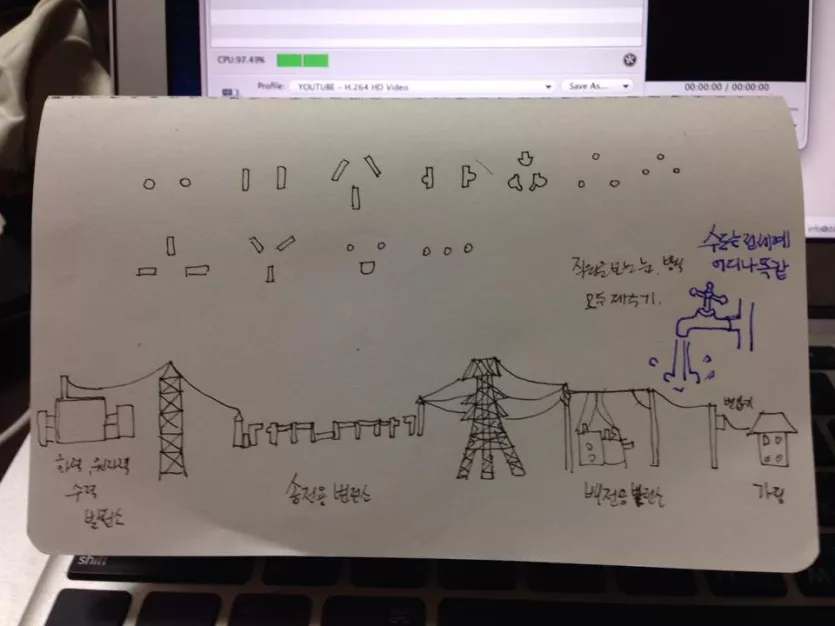 CPU:97.49%
Profile: YOUTUBE - H.264 HD Video
Save As...
00:00:00 / 00:00:00
수도는 전세계
어디나 똑같
방식
모두 제각기.
변압기
화력, 원자력
수력
발전소
송전용 변전소
배전용 변전소
가정
shift